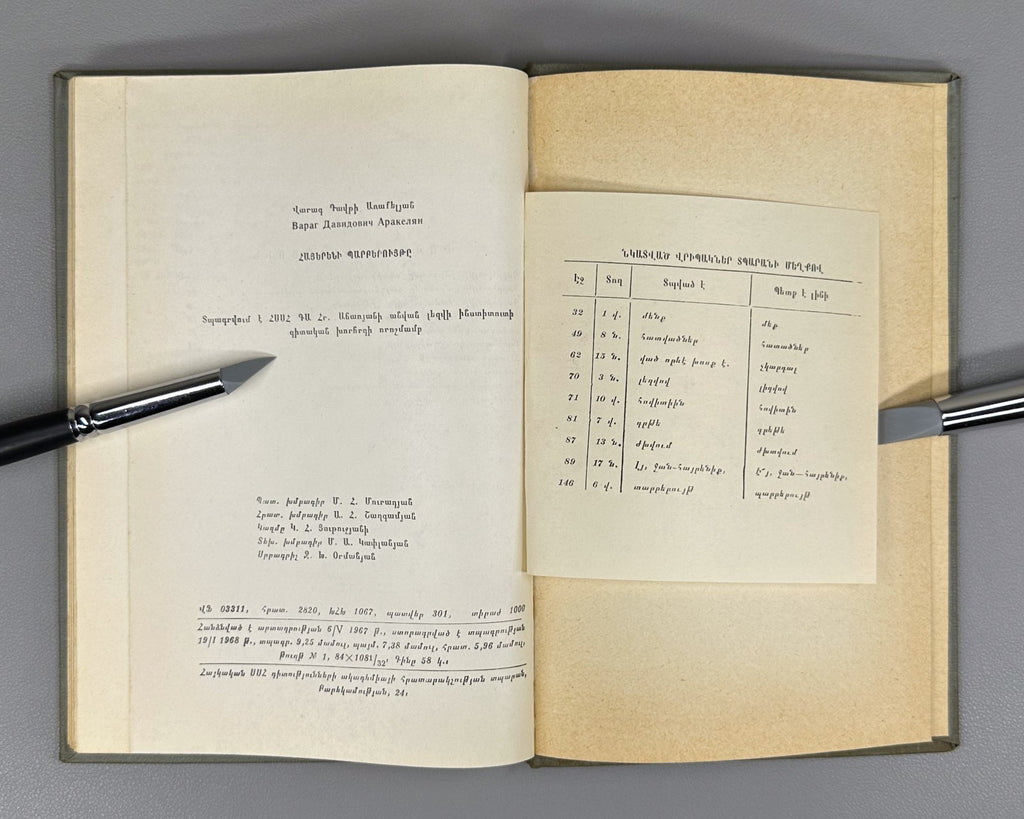 Վարագ Դավթի Առաքելյան
Вараг Давидович Аракелян
ՀԱՅԵՐԵՆԻ ՊԱՐԲԵՐՈՒՅԹԸ
Տպագրվում է ՀՍՍՀ ԳԱ Հր. Աճառյանի անվան լեզվի ինստիտուտի
գիտական խորհրդի որոշմամբ
Պատ. խմբագիր Մ. Հ. Մուրադյան
Հրատ. խմբագիր Ա. Հ. Շաղգամյան
Կազմը Կ. Հ.
Տեխ. խմբագիր Մ. Ա. Կափլանյան
Սրբագրիչ Զ. Խ. Օրմանյան
ՎՖ 03311, հրատ. 2820, ԽՀԽ 1067, պատվեր 301, տիրաժ 1000
Հանձնված է արտադրության 6/V 1967 թ., ստորագրված է տպագրության
19/I 1968 թ., տպագր. 9,25 մամուլ, պայմ. 7,38 մամուլ, հրատ. 5,96 մամուլ,
թուղթ № 1, 84×1081/32, Գինը 58 կ.։
Հայկական ՍՍՀ գիտությունների ակադեմիայի հրատարակչության տպարան,
Բարեկամության, 24։
ՆԿԱՏՎԱԾ ՎՐԻՊԱԿՆԵՐ ՏՊԱՐԱՆԻ ՄԵՂՔՈՎ
Էջ Տող Տպված է Պետք է լինի
32 1 վ. մենք մեք
49 8 ն. հատվածներ հատածներ
62 15 ն. ված որևէ խոսք է. չկարդալ
70 3 ն. լեզվով լիզվով
71 10 վ. հովիտիին հովիտին
81 7 վ. գրթե գրեթե
87 13 ն. ժխվում ժխտվում
89 17 ն. Էյ, ջան-հայրենիք, Է՜յ, ջան-հայրենիք,
146 6 վ. տարբերույթ պարբերույթ